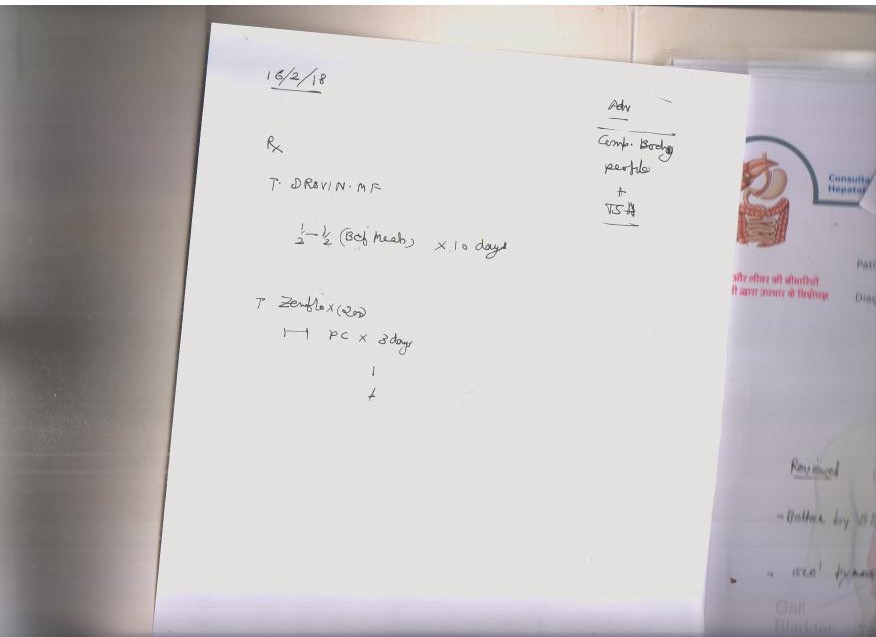 16/2/18
Adv
Comp. Body
profile
+
TSH
Rx
T. DROVIN.MF
½-½ (Bef meals) x 10 days
T Zenflox (200)
1—1 PC x 3 days
Consulta
Hepatol
और लीवर की बीमारियों
द्वारा उपचार के विशेषज्ञ
Pati
Diag
Reviewed
by
Gall
Bladder